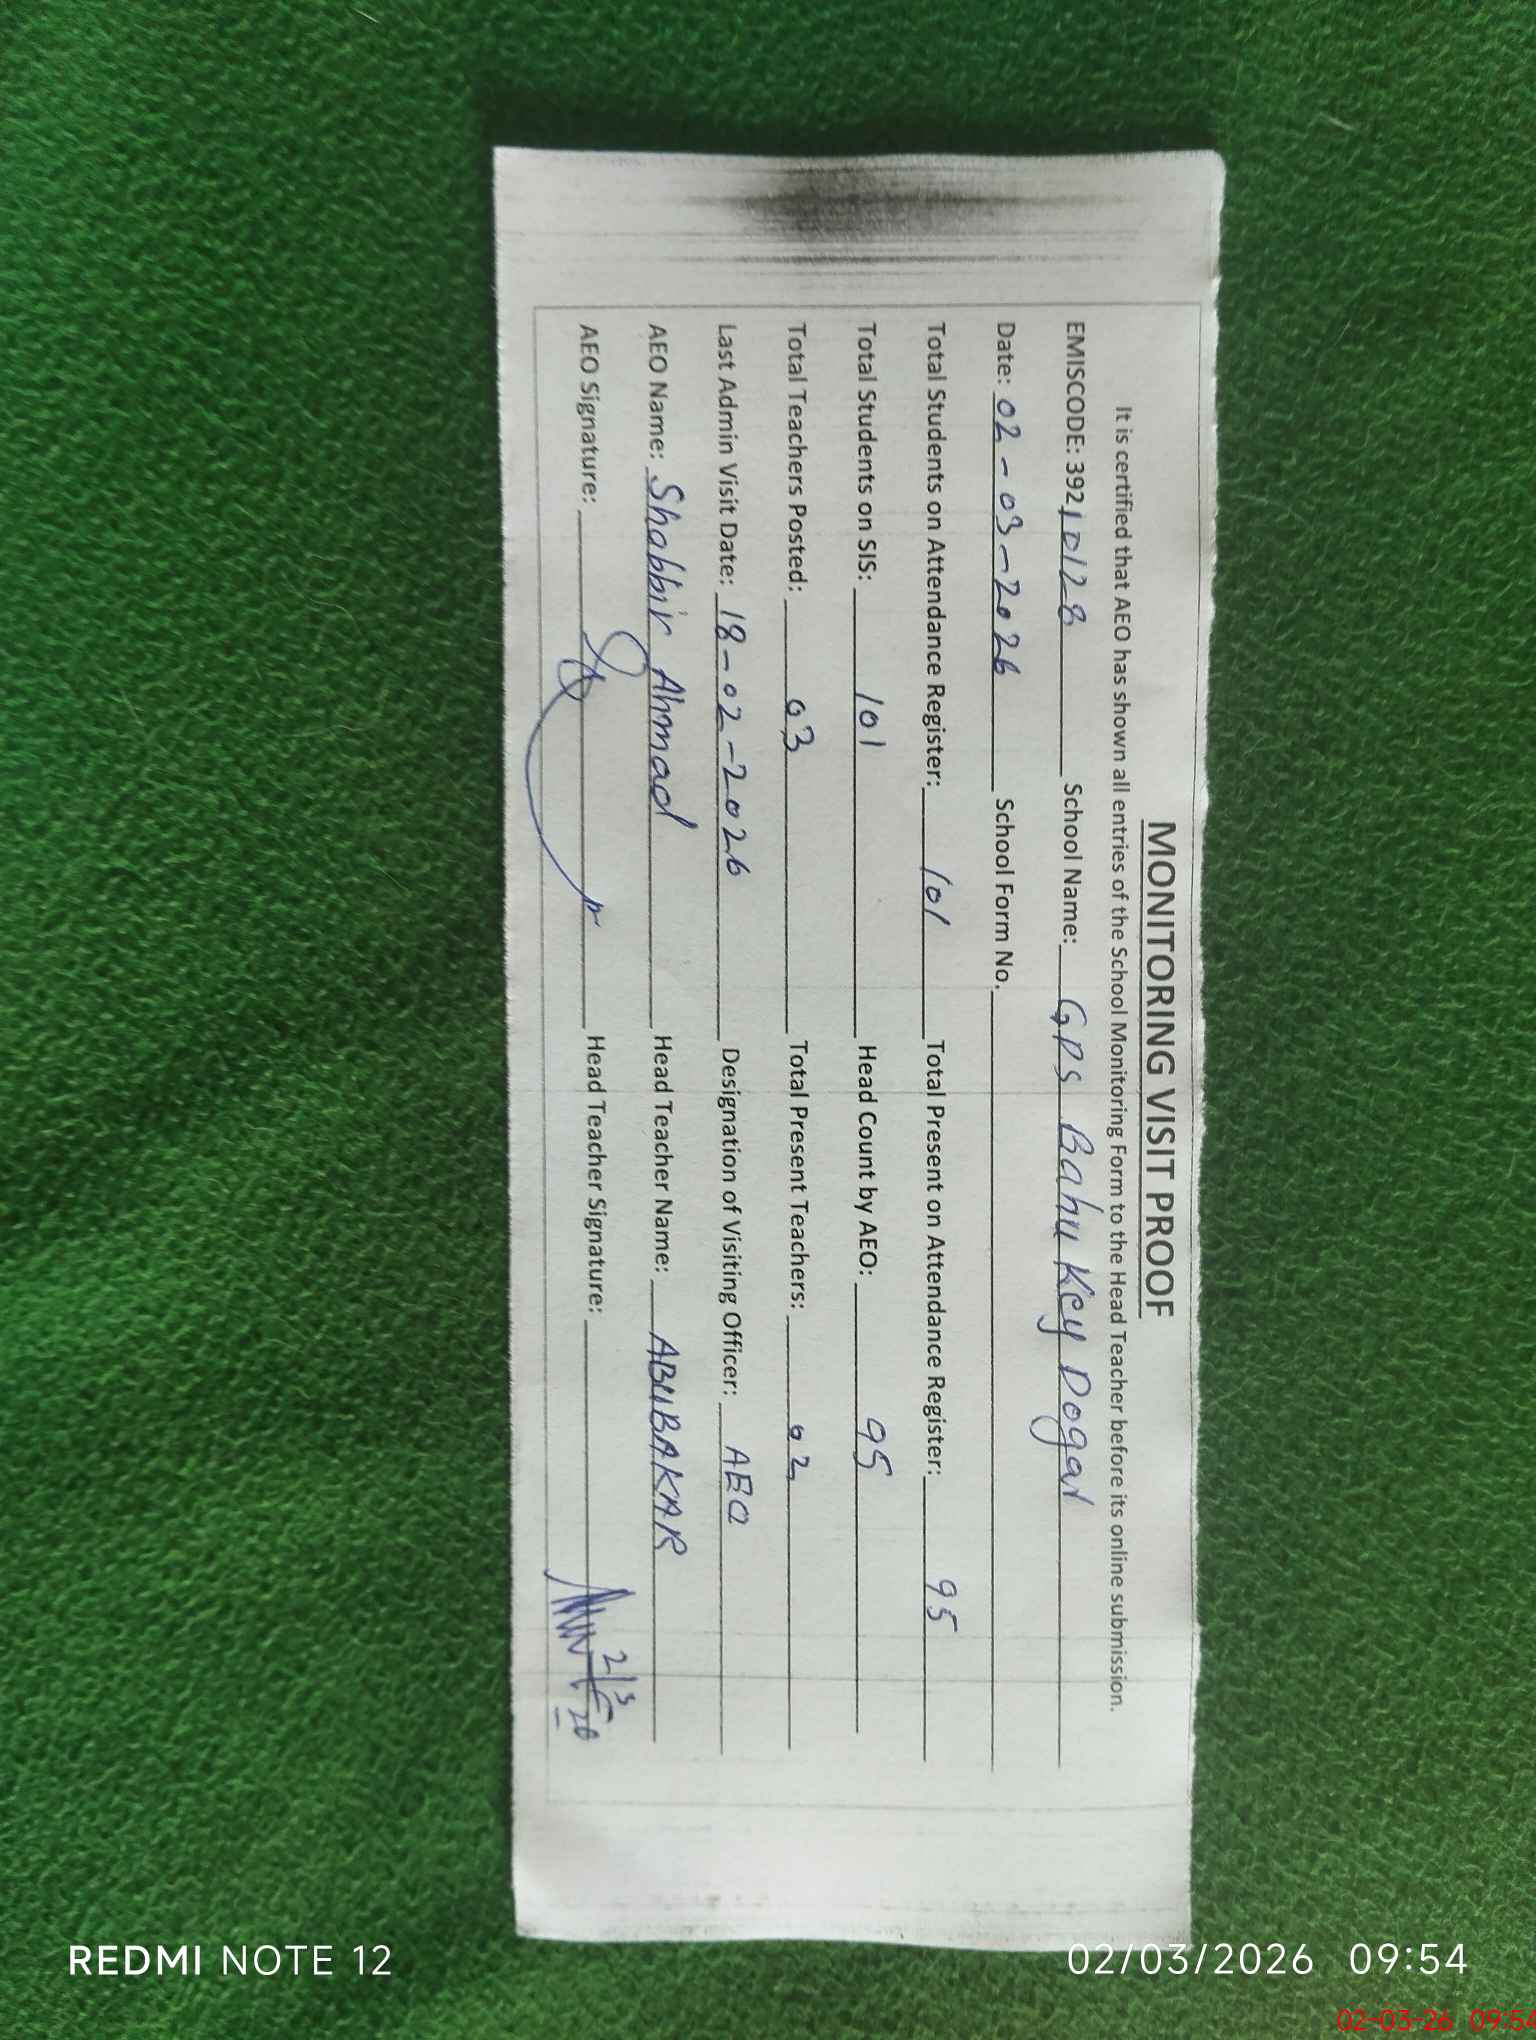 MONITORING VISIT PROOF
It is certified that AEO has shown all entries of the School Monitoring Form to the Head Teacher before its online submission.
EMISCODE: 39210128 School Name: GPS Bahu Key Dogar
Date: 02-03-2026 School Form No.
Total Students on Attendance Register: 101 Total Present on Attendance Register: 95
Total Students on SIS: 101 Head Count by AEO: 95
Total Teachers Posted: 03 Total Present Teachers: 02
Last Admin Visit Date: 18-02-2026 Designation of Visiting Officer: AEO
AEO Name: Shabbir Ahmad Head Teacher Name: ABUBAKAR
AEO Signature: Head Teacher Signature: 2/3
26
REDMI NOTE 12 02/03/2026 09:54
02-03-26 09:54